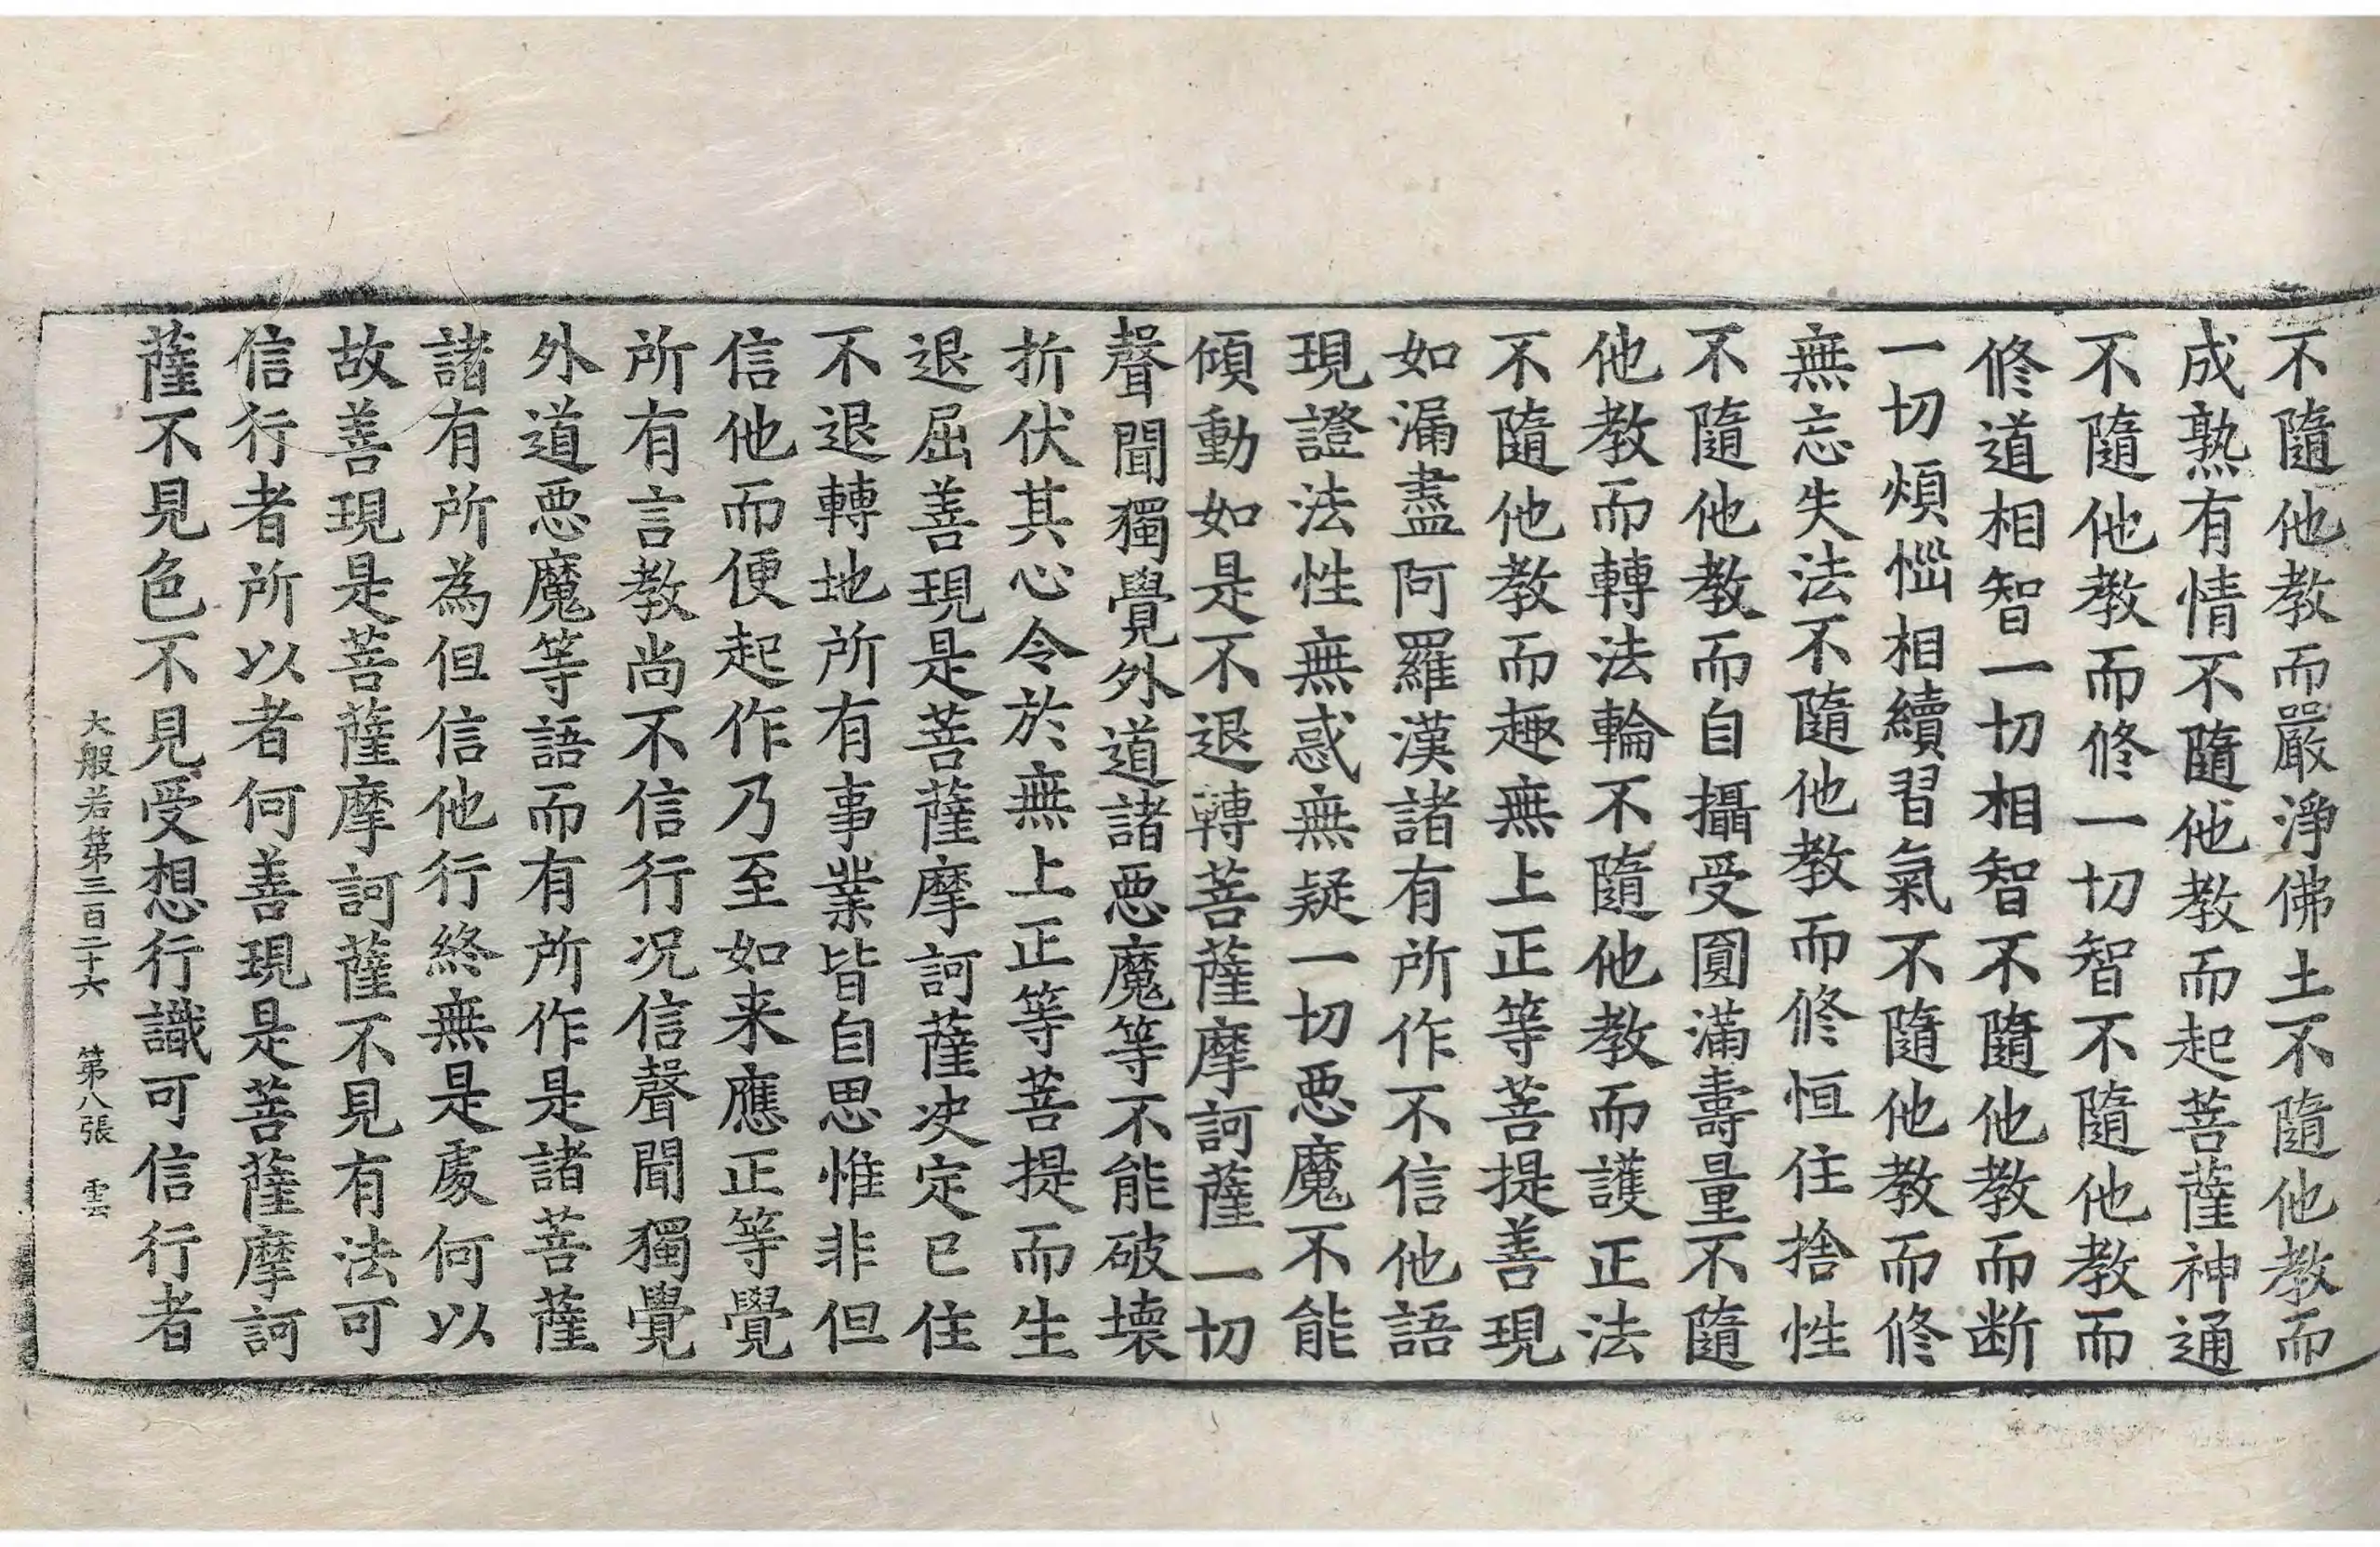 不隨他教而嚴淨佛土不隨他教而
成熟有情不隨他教而起菩薩神通
不隨他教而修一切智不隨他教而
修道相智一切相智不隨他教而断
一切煩惱相續習氣不隨他教而修
無忘失法不隨他教而修恒住捨性
不隨他教而自攝受圓滿壽量不隨
他教而轉法輪不隨他教而護正法
不隨他教而趣無上正等菩提善現
如漏盡阿羅漢諸有所作不信他語
現證法性無惑無疑一切惡魔不能
傾動如是不退轉菩薩摩訶薩一切
聲聞獨覺外道諸惡魔等不能破壞
折伏其心令於無上正等菩提而生
退屈善現是菩薩摩訶薩决定已住
不退轉地所有事業皆自思惟非但
信他而便起作乃至如来應正等覺
所有言教尚不信行况信聲聞獨覺
外道惡魔等語而有所作是諸菩薩
諸有所為但信他行終無是處何以
故善現是菩薩摩訶薩不見有法可
信行者所以者何善現是菩薩摩訶
薩不見色不見受想行識可信行者
大般若第三百二十六 第八張 雲